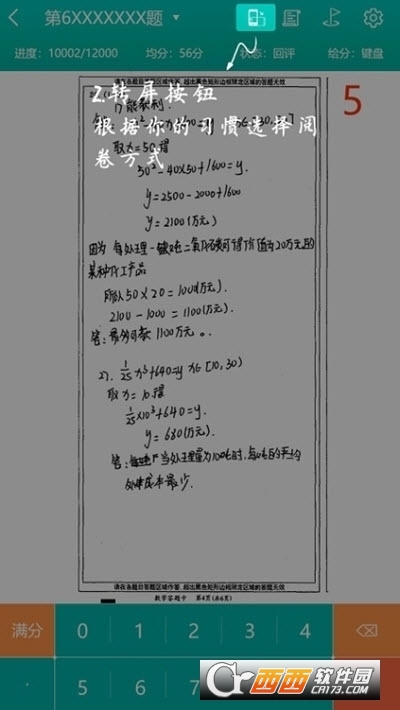 第6XXXXXXX题
进度：10002/12000 均分：56分 状态：回评 给分：键盘
请在各题目答题区域内作答，超出黑色矩形边框限定区域的答案无效
5
2.转屏按钮
根据你的习惯选择阅
卷方式
1) 能获利.
取x=50得
50²-40×50+1600=y.
y=2500-2000+1600
y=2100(万元)
因为 每处理一吨二氧化碳可得价值为20万元的
某种化工产品
所以 50×20=1000(万元).
2100-1000=1100(万元)
答: 最多可 1100万元。
2). 1/25 x³+640=y x∈[10,30)
取x=10.得
1/25×10³+640=y.
y=680(万元).
答: 当处理量为100吨时, 每吨的平均
处理成本最少.
请在各题目答题区域内作答，超出黑色矩形边框限定区域的答案无效
数学答题卡 第4页(共6页)
满分 0 1 2 3 4
. 5 6 7
西西软件园
CR173.COM